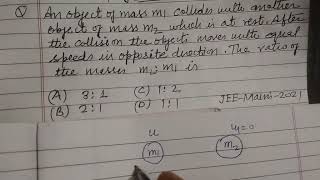 Q An object of mass m1 collides with another
object of mass m2 which is at rest. After
the collision the objects move with equal
speeds in opposite direction. The ratio of
the masses m2 : m1 is
(A) 3:1 (C) 1:2
(B) 2:1 (D) 1:1 JEE-Mains-2021
u u2=0
m1 m2